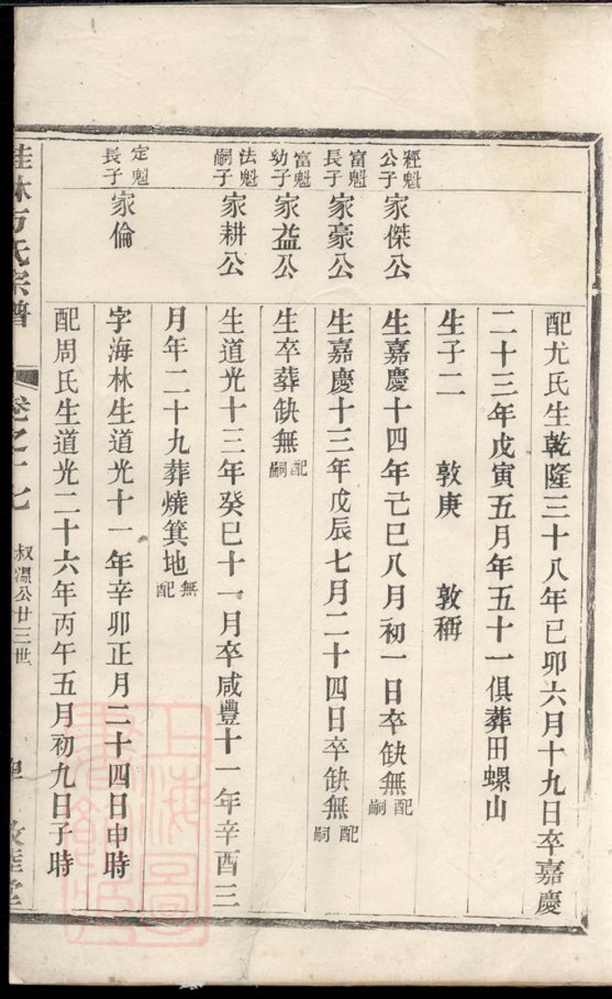 配尤氏生乾隆三十八年己卯六月十九日卒嘉慶
二十三年戊寅五月年五十一俱葬田螺山
生子二　敦庚　敦稱
經魁公子　家傑公　生嘉慶十四年己巳八月初一日卒缺無配嗣
富魁長子　家豪公　生嘉慶十三年戊辰七月二十四日卒缺無配嗣
富魁幼子　家益公　生卒葬缺無配嗣
法魁嗣子　家耕公　生道光十三年癸巳十一月卒咸豐十一年辛酉三
月年二十九葬燒箕地無配
定魁長子　家倫　字海林生道光十一年辛卯正月二十四日申時
配周氏生道光二十六年丙午五月初九日子時
桂林方氏宗譜　卷之十七　叔濕公廿三世　敦睦堂